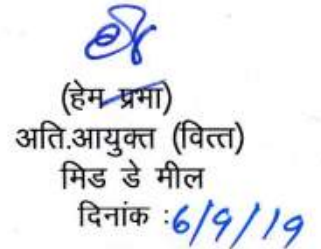 (हेम प्रभा)
अति.आयुक्त (वित्त)
मिड डे मील
दिनांक :6/9/19